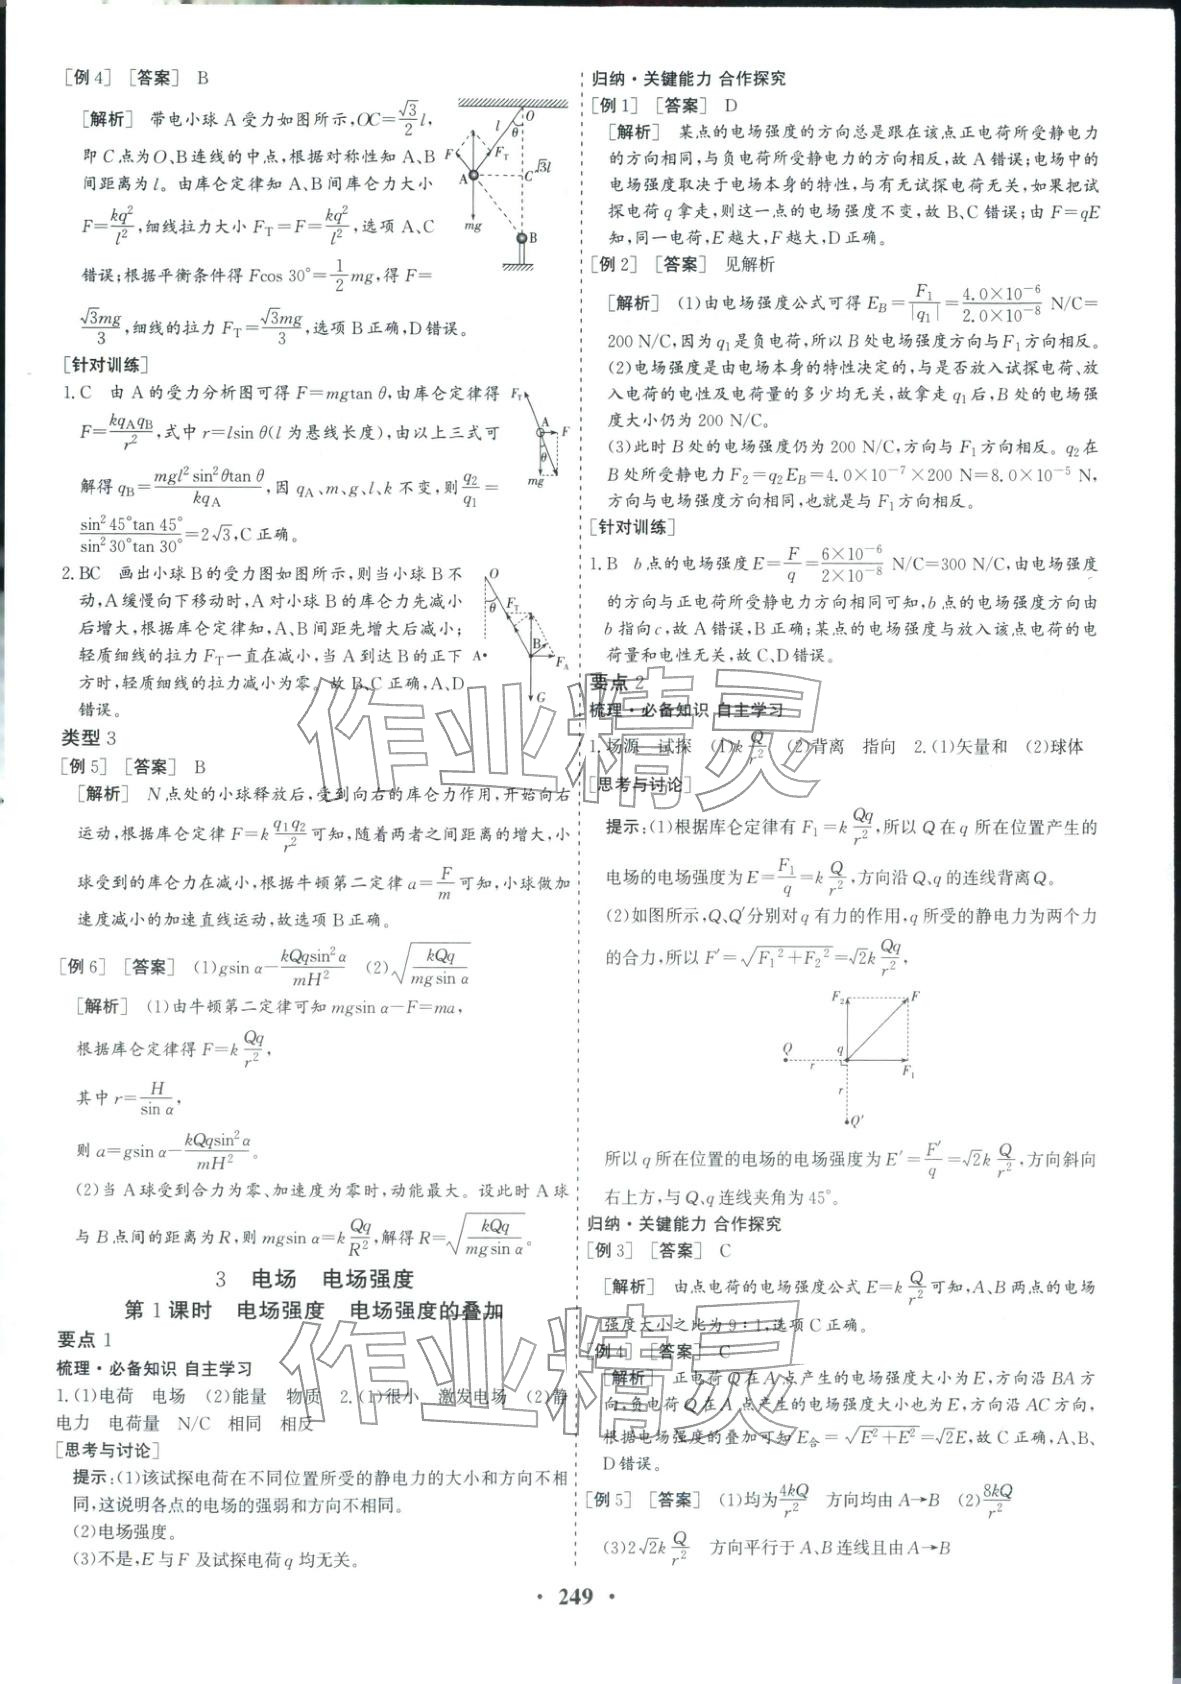 [例4] [答案] B
[解析] 带电小球A受力如图所示,OC=\frac{\sqrt{3}}{2}l,
即C点为O、B连线的中点,根据对称性知A、B
间距离为l。由库仑定律知A、B间库仑力大小
F=\frac{kq²}{l²},细线拉力大小F_T=F=\frac{kq²}{l²},选项A、C
错误;根据平衡条件得Fcos 30°=\frac{1}{2}mg,得F=
\frac{\sqrt{3}mg}{3},细线的拉力F_T=\frac{\sqrt{3}mg}{3},选项B正确,D错误。
O
l
θ
F
F_T
A
C
\sqrt{3}l
mg
B
[针对训练]
1.C 由A的受力分析图可得F=mgtan θ,由库仑定律得
F=\frac{kq_Aq_B}{r²},式中r=lsin θ(l为悬线长度),由以上三式可
解得q_B=\frac{mgl²sin²θtan θ}{kq_A},因q_A、m、g、l、k不变,则\frac{q_2}{q_1}=
\frac{sin²45°tan 45°}{sin²30°tan 30°}=2\sqrt{3},C正确。
F_T
A
F
θ
mg
2.BC 画出小球B的受力图如图所示,则当小球B不
动,A缓慢向下移动时,A对小球B的库仑力先减小
后增大,根据库仑定律知,A、B间距先增大后减小;
轻质细线的拉力F_T一直在减小,当A到达B的正下
方时,轻质细线的拉力减小为零。故B、C正确,A、D
错误。
O
θ
F_T
B
A
F_A
G
类型3
[例5] [答案] B
[解析] N点处的小球释放后,受到向右的库仑力作用,开始向右
运动,根据库仑定律F=k\frac{q_1q_2}{r²}可知,随着两者之间距离的增大,小
球受到的库仑力在减小,根据牛顿第二定律a=\frac{F}{m}可知,小球做加
速度减小的加速直线运动,故选项B正确。
[例6] [答案] (1)gsin α-\frac{kQqsin²α}{mH²} (2)\sqrt{\frac{kQq}{mgsin α}}
[解析] (1)由牛顿第二定律可知mgsin α-F=ma,
根据库仑定律得F=k\frac{Qq}{r²},
其中r=\frac{H}{sin α},
则a=gsin α-\frac{kQqsin²α}{mH²}。
(2)当A球受到合力为零、加速度为零时,动能最大。设此时A球
与B点间的距离为R,则mgsin α=k\frac{Qq}{R²},解得R=\sqrt{\frac{kQq}{mgsin α}}。
3 电场 电场强度
第1课时 电场强度 电场强度的叠加
要点1
梳理·必备知识 自主学习
1.(1)电荷 电场 (2)能量 物质 2.(1)很小 激发电场 (2)静
电力 电荷量 N/C 相同 相反
[思考与讨论]
提示:(1)该试探电荷在不同位置所受的静电力的大小和方向不相
同,这说明各点的电场的强弱和方向不相同。
(2)电场强度。
(3)不是,E与F及试探电荷q均无关。
归纳·关键能力 合作探究
[例1] [答案] D
[解析] 某点的电场强度的方向总是跟在该点正电荷所受静电力
的方向相同,与负电荷所受静电力的方向相反,故A错误;电场中的
电场强度取决于电场本身的特性,与有无试探电荷无关,如果把试
探电荷q拿走,则这一点的电场强度不变,故B、C错误;由F=qE
知,同一电荷,E越大,F越大,D正确。
[例2] [答案] 见解析
[解析] (1)由电场强度公式可得E_B=\frac{F_1}{|q_1|}=\frac{4.0×10⁻⁶}{2.0×10⁻⁸} N/C=
200 N/C,因为q_1是负电荷,所以B处电场强度方向与F_1方向相反。
(2)电场强度是由电场本身的特性决定的,与是否放入试探电荷、放
入电荷的电性及电荷量的多少均无关,故拿走q_1后,B处的电场强
度大小仍为200 N/C。
(3)此时B处的电场强度仍为200 N/C,方向与F_1方向相反。q_2在
B处所受静电力F_2=q_2E_B=4.0×10⁻⁷×200 N=8.0×10⁻⁵ N,
方向与电场强度方向相同,也就是与F_1方向相反。
[针对训练]
1.B b点的电场强度E=\frac{F}{q}=\frac{6×10⁻⁶}{2×10⁻⁸} N/C=300 N/C,由电场强度
的方向与正电荷所受静电力方向相同可知,b点的电场强度方向由
b指向c,故A错误,B正确;某点的电场强度与放入该点电荷的电
荷量和电性无关,故C、D错误。
要点2
梳理·必备知识 自主学习
1.场源 试探 (1)k\frac{Q}{r²} (2)背离 指向 2.(1)矢量和 (2)球体
[思考与讨论]
提示:(1)根据库仑定律有F_1=k\frac{Qq}{r²},所以Q在q所在位置产生的
电场的电场强度为E=\frac{F_1}{q}=k\frac{Q}{r²},方向沿Q、q的连线背离Q。
(2)如图所示,Q、Q′分别对q有力的作用,q所受的静电力为两个力
的合力,所以F′=\sqrt{F_1²+F_2²}=\sqrt{2}k\frac{Qq}{r²},
F_2
F
Q
q
r
F_1
r
Q′
所以q所在位置的电场的电场强度为E′=\frac{F′}{q}=\sqrt{2}k\frac{Q}{r²},方向斜向
右上方,与Q、q连线夹角为45°。
归纳·关键能力 合作探究
[例3] [答案] C
[解析] 由点电荷的电场强度公式E=k\frac{Q}{r²}可知,A、B两点的电场
强度大小之比为9∶1,选项C正确。
[例4] [答案] C
[解析] 正电荷Q在A点产生的电场强度大小为E,方向沿BA方
向,负电荷Q在A点产生的电场强度大小也为E,方向沿AC方向,
根据电场强度的叠加可知E_合=\sqrt{E²+E²}=\sqrt{2}E,故C正确,A、B、
D错误。
[例5] [答案] (1)均为\frac{4kQ}{r²} 方向均由A→B (2)\frac{8kQ}{r²}
(3)2\sqrt{2}k\frac{Q}{r²} 方向平行于A、B连线且由A→B
· 249 ·
作业精灵
作业精灵